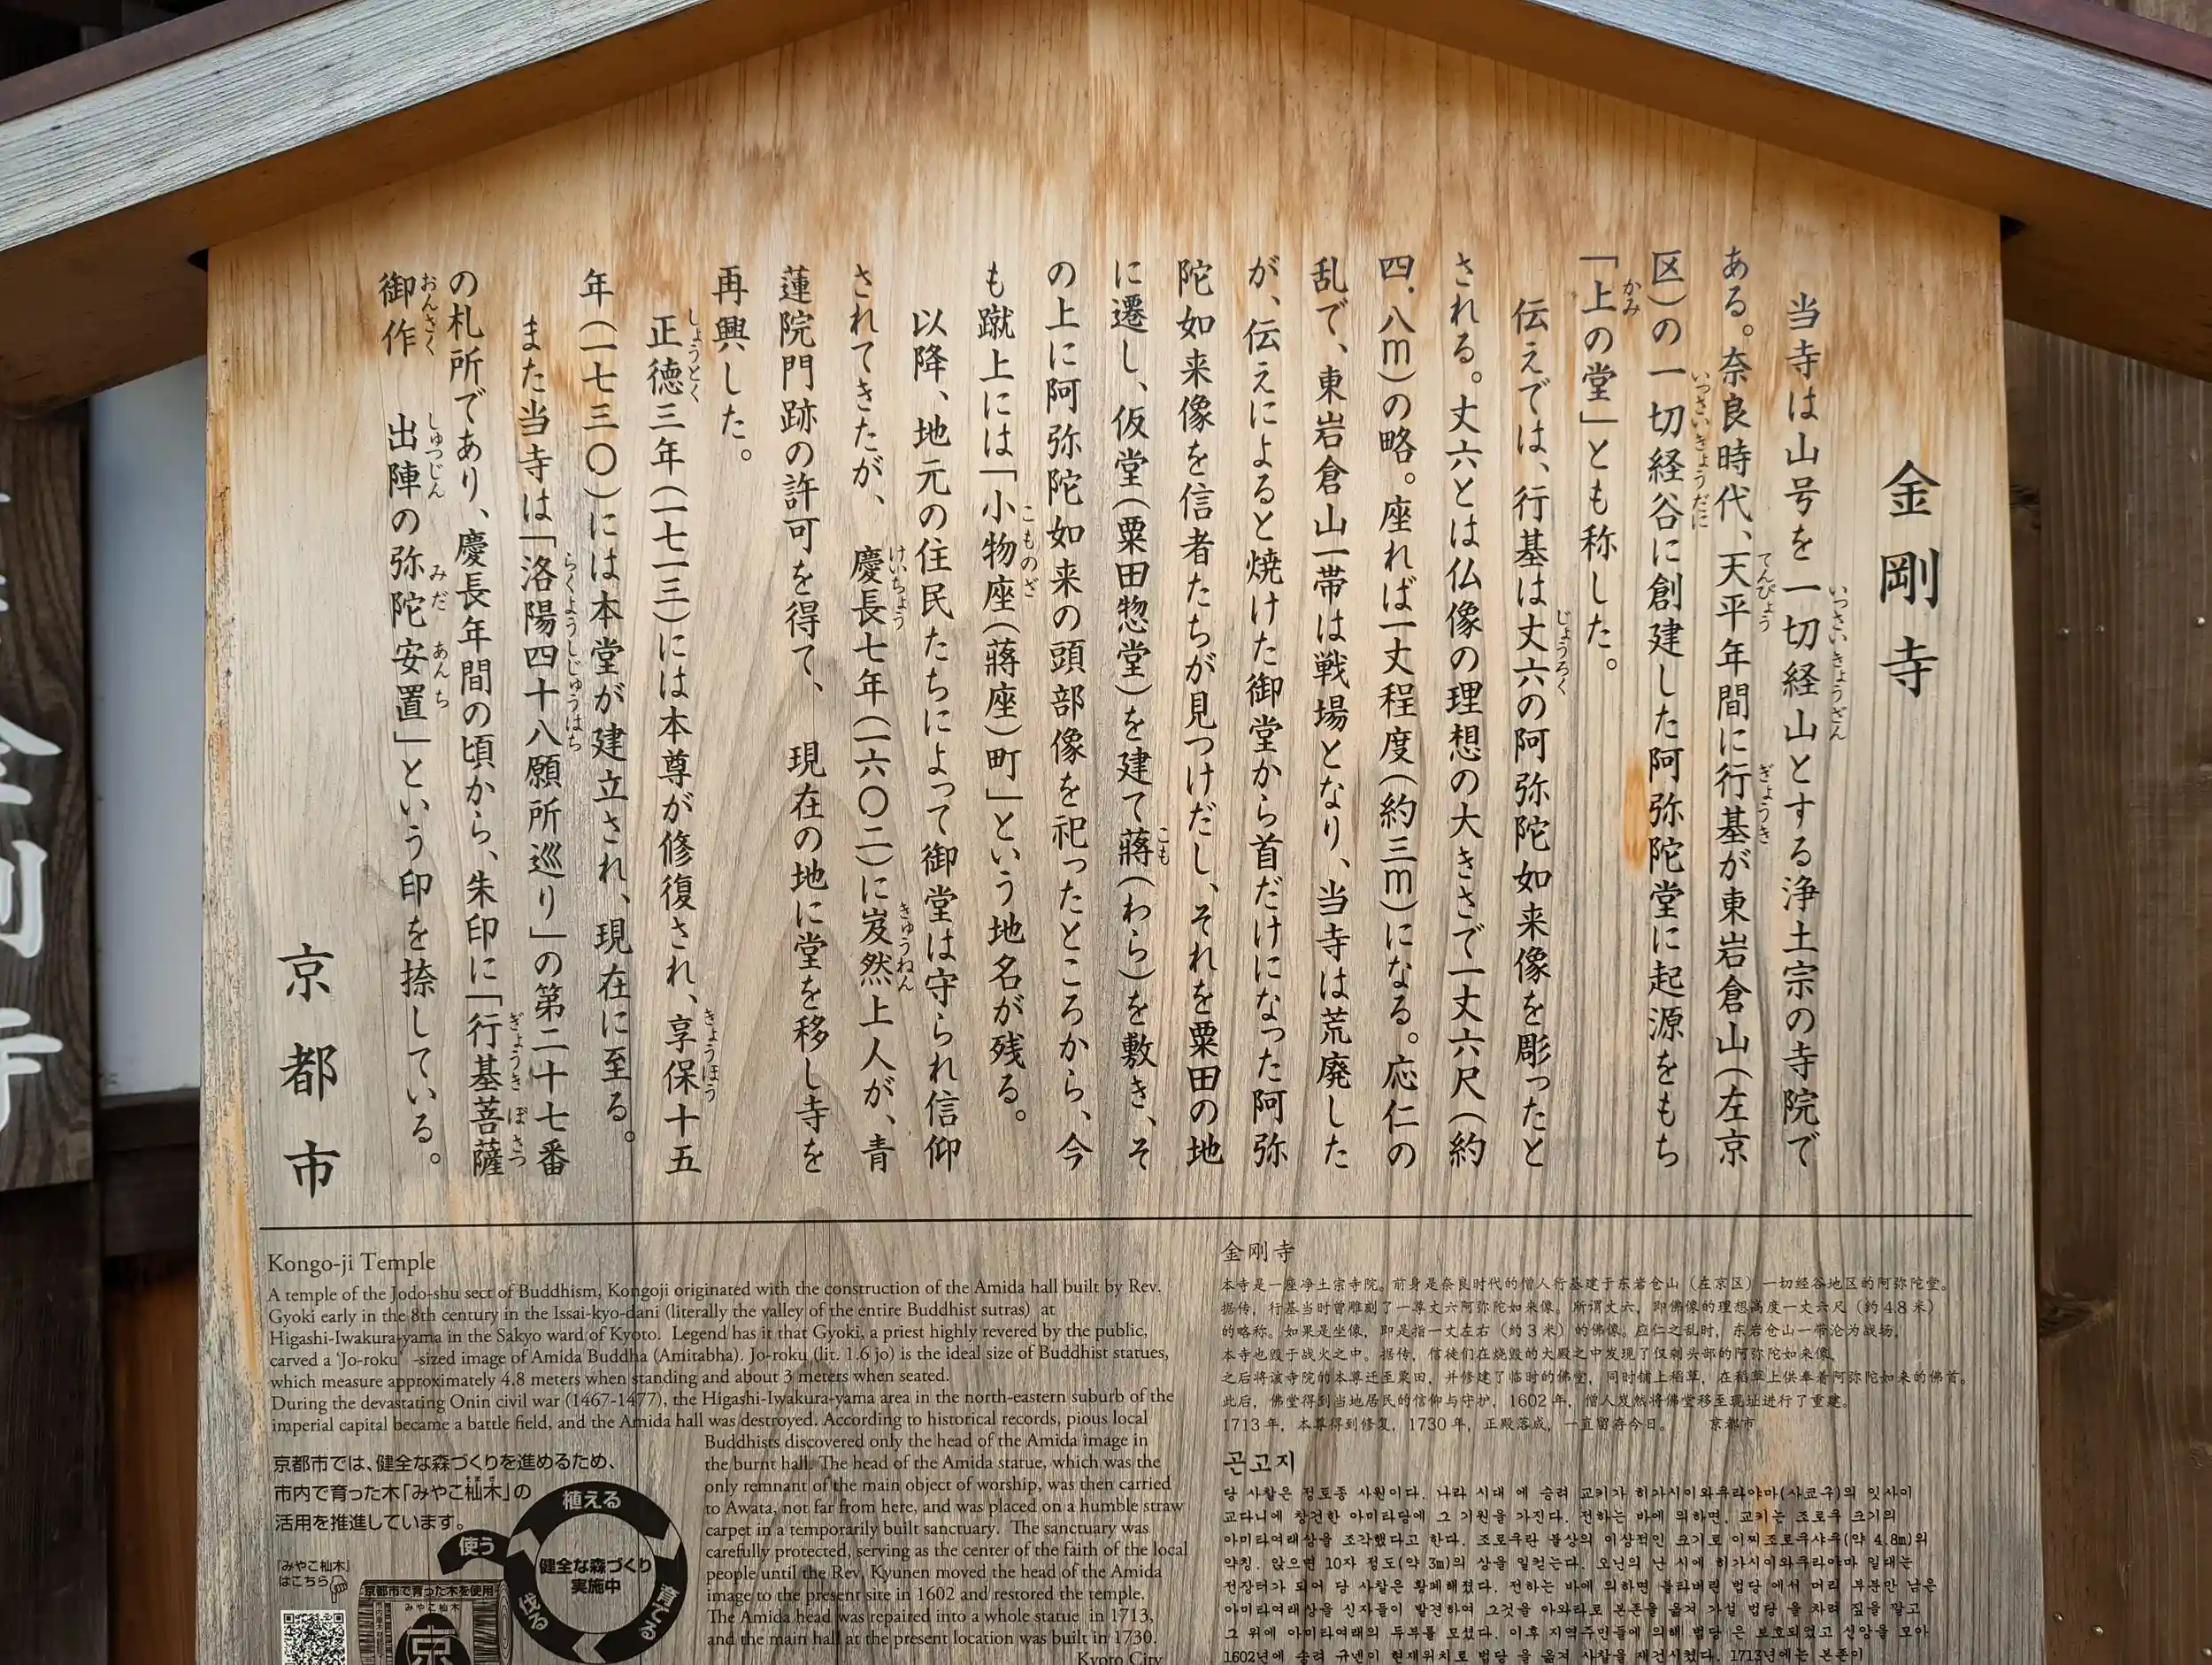 金剛寺
当寺は山号を一切経山とする浄土宗の寺院で
ある。奈良時代、天平年間に行基が東岩倉山(左京
区)の一切経谷に創建した阿弥陀堂に起源をもち
「上の堂」とも称した。
伝えでは、行基は丈六の阿弥陀如来像を彫ったと
される。丈六とは仏像の理想の大きさで一丈六尺(約
四.八m)の略。座れば一丈程度(約三m)になる。応仁の
乱で、東岩倉山一帯は戦場となり、当寺は荒廃した
が、伝えによると焼けた御堂から首だけになった阿弥
陀如来像を信者たちが見つけだし、それを粟田の地
に遷し、仮堂(粟田惣堂)を建て蒋(わら)を敷き、そ
の上に阿弥陀如来の頭部像を祀ったところから、今
も蹴上には「小物座(蒋座)町」という地名が残る。
以降、地元の住民たちによって御堂は守られ信仰
されてきたが、慶長七年(一六〇二)に岌然上人が、青
蓮院門跡の許可を得て、現在の地に堂を移し寺を
再興した。
正徳三年(一七一三)には本尊が修復され、享保十五
年(一七三〇)には本堂が建立され、現在に至る。
また当寺は「洛陽四十八願所巡り」の第二十七番
の札所であり、慶長年間の頃から、朱印に「行基菩薩
御作 出陣の弥陀安置」という印を捺している。
京都市
Kongo-ji Temple
A temple of the Jodo-shu sect of Buddhism, Kongoji originated with the construction of the Amida hall built by Rev.
Gyoki early in the 8th century in the Issai-kyo-dani (literally the valley of the entire Buddhist sutras) at
Higashi-Iwakura-yama in the Sakyo ward of Kyoto. Legend has it that Gyoki, a priest highly revered by the public,
carved a 'Jo-roku' -sized image of Amida Buddha (Amitabha). Jo-roku (lit. 1.6 jo) is the ideal size of Buddhist statues,
which measure approximately 4.8 meters when standing and about 3 meters when seated.
During the devastating Onin civil war (1467-1477), the Higashi-Iwakura-yama area in the north-eastern suburb of the
imperial capital became a battle field, and the Amida hall was destroyed. According to historical records, pious local
Buddhists discovered only the head of the Amida image in
the burnt hall. The head of the Amida statue, which was the
only remnant of the main object of worship, was then carried
to Awata, not far from here, and was placed on a humble straw
carpet in a temporarily built sanctuary. The sanctuary was
carefully protected, serving as the center of the faith of the local
people until the Rev. Kyunen moved the head of the Amida
image to the present site in 1602 and restored the temple.
The Amida head was repaired into a whole statue in 1713,
and the main hall at the present location was built in 1730.
Kyoto City
京都市では、健全な森づくりを進めるため、
市内で育った木「みやこ杣木」の
活用を推進しています。
「みやこ杣木」
はこちら
植える
育てる
伐る
使う
健全な森づくり
実施中
京都市で育った木を使用
みやこ杣木
京
金剛寺
本寺是一座净土宗寺院。前身是奈良时代的僧人行基建于东岩仓山（左京区）一切经谷地区的阿弥陀堂。
据传，行基当时曾雕刻了一尊丈六阿弥陀如来像。所谓丈六，即佛像的理想高度一丈六尺（约4.8米）
的略称。如果是坐像，即是指一丈左右（约3米）的佛像。应仁之乱时，东岩仓山一带沦为战场，
本寺也毁于战火之中。据传，信徒们在烧毁的大殿之中发现了仅剩头部的阿弥陀如来像，
之后将该寺院的本尊迁至粟田，并修建了临时的佛堂，同时铺上稻草，在稻草上供奉着阿弥陀如来的佛首。
此后，佛堂得到当地居民的信仰与守护，1602年，僧人岌然将佛堂移至现址进行了重建。
1713年，本尊得到修复，1730年，正殿落成，一直留存今日。 京都市
곤고지
당 사찰은 정토종 사원이다. 나라 시대 에 승려 교키가 히가시이와쿠라야마(사쿄구)의 잇사이
쿄다니에 창건한 아미타당에 그 기원을 가진다. 전하는 바에 의하면, 교키는 조로쿠 크기의
아미타여래상을 조각했다고 한다. 조로쿠란 불상의 이상적인 크기로 이찌조로쿠샤쿠(약 4.8m)의
약칭. 앉으면 10자 정도(약 3m)의 상을 일컫는다. 오닌의 난 시에 히가시이와쿠라야마 일대는
전장터가 되어 당 사찰은 황폐해졌다. 전하는 바에 의하면 불타버린 법당 에서 머리 부분만 남은
아미타여래상을 신자들이 발견하여 그것을 아와타로 본존을 옮겨 가설 법당 을 차려 짚을 깔고
그 위에 아미타여래의 두부를 모셨다. 이후 지역주민들에 의해 법당 은 보호되었고 신앙을 모아
1602년에 승려 규넨이 현재위치로 법당 을 옮겨 사찰을 재건시켰다. 1713년에는 본존이
金剛寺